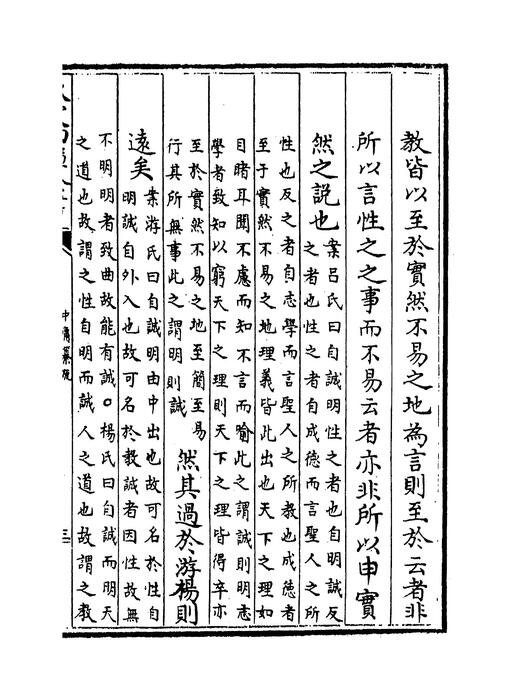 教皆以至於實然不易之地為言則至於云者非
所以言性之之事而不易云者亦非所以申實
然之説也
案吕氏曰自誠明性之者也自明誠反
之者也性之者自成德而言聖人之所
性也反之者自志學而言聖人之所教也成德者
至于實然不易之地理義皆此出也天下之理如
目睹耳聞不慮而知不言而喻此之謂誠則明志
學者致知以窮天下之理則天下之理皆得卒亦
至於實然不易之地至簡至易
行其所無事此之謂明則誠
然其過於游楊則
遠矣
案游氏曰自誠明由中出也故可名於性自
明誠自外入也故可名於教誠者因性故無
不明明者致曲故能有誠○楊氏曰自誠而明天
之道也故謂之性自明而誠人之道也故謂之教
中庸纂疏
三